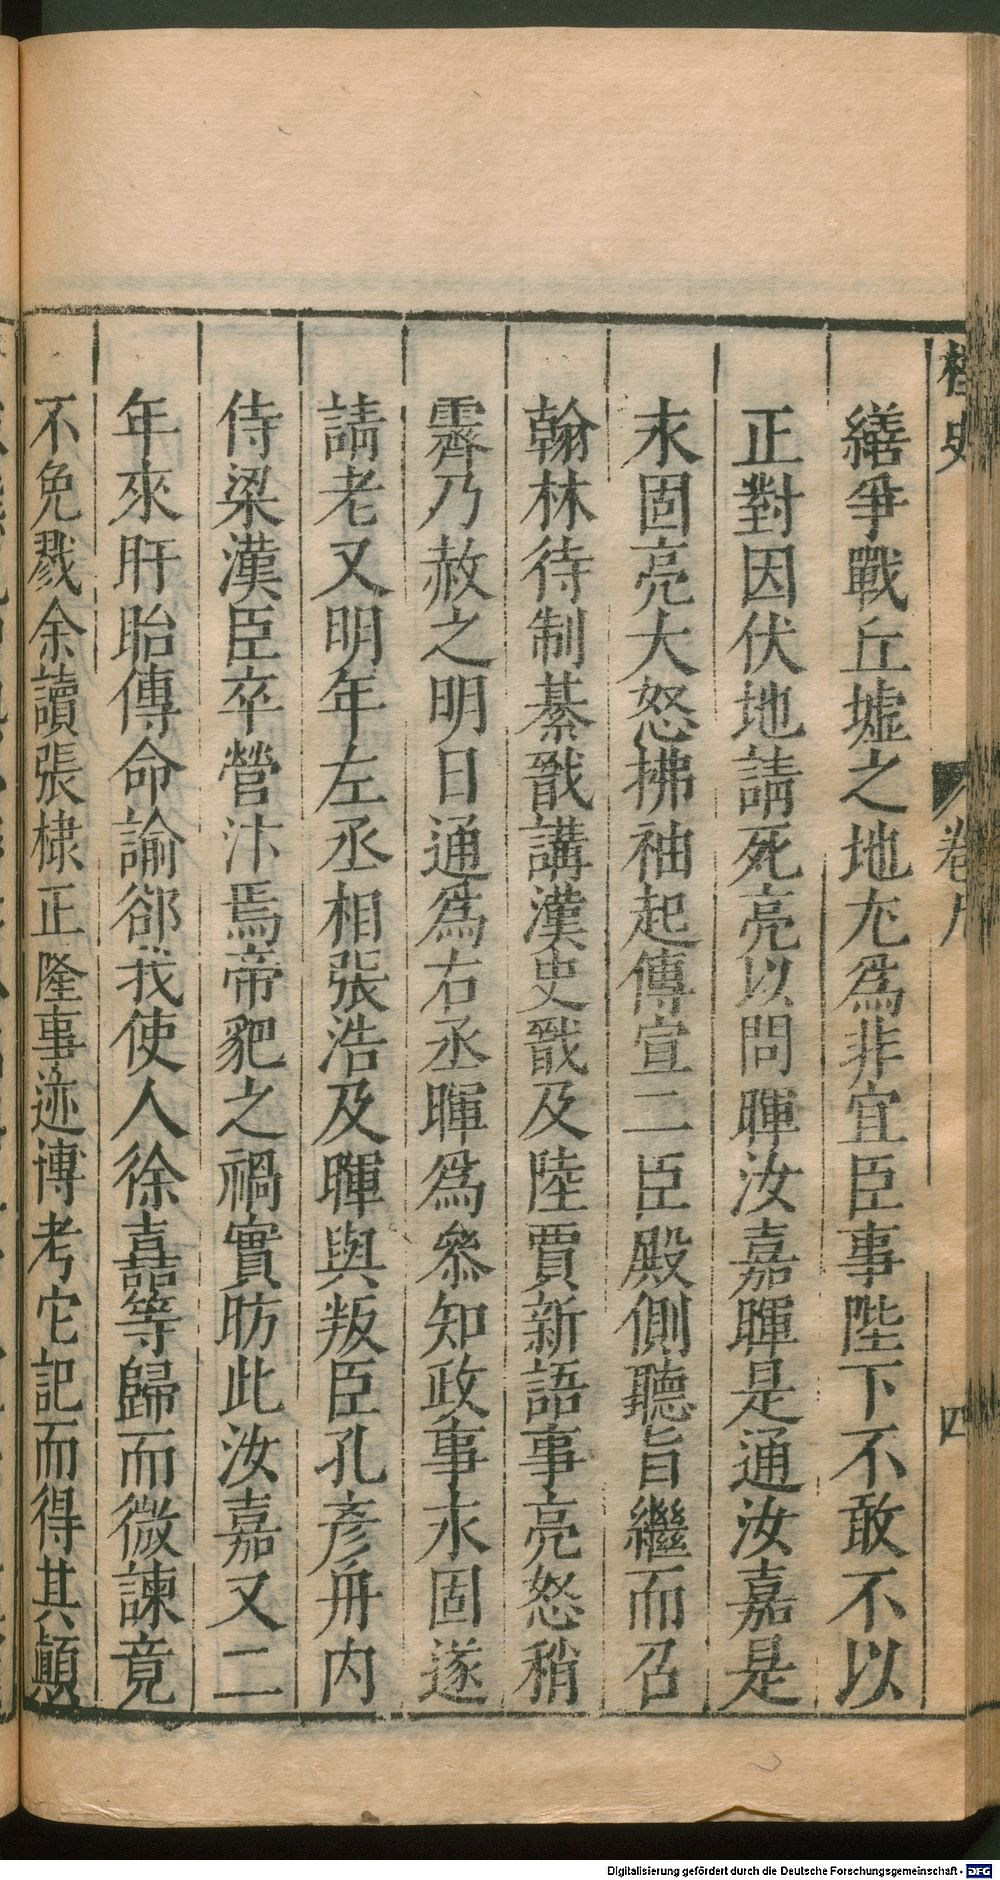 桯史
卷九
四
繕爭戰丘墟之地尢爲非宜臣事陛下不敢不以
正對因伏地請死亮以問暉汝嘉暉是通汝嘉是
永固亮大怒拂袖起傳宣二臣殿側聽旨繼而召
翰林待制綦戩講漢史戩及陸賈新語事亮怒稍
霽乃赦之明日通爲右丞暉爲叅知政事永固遂
請老又明年左丞相張浩及暉與叛臣孔彥舟內
侍梁漢臣卒營汴焉帝豝之禍實昉此汝嘉又二
年來盱眙傳命諭郤我使人徐嚞等歸而微諫竟
不免戮余讀張棣正隆事迹博考它記而得其顚
Digitalisierung gefördert durch die Deutsche Forschungsgemeinschaft - DFG